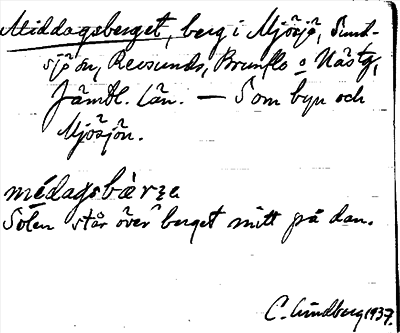 Middagsberget, berg i Mjösjö, Sund-
sjö sn, Revsunds, Brunflo o Näs tg,
Jämtl. län. — Som byn och
Mjösjön.
médagsbàrʒe
Solen står över berget mitt på dan.
C. Lindberg 1937.